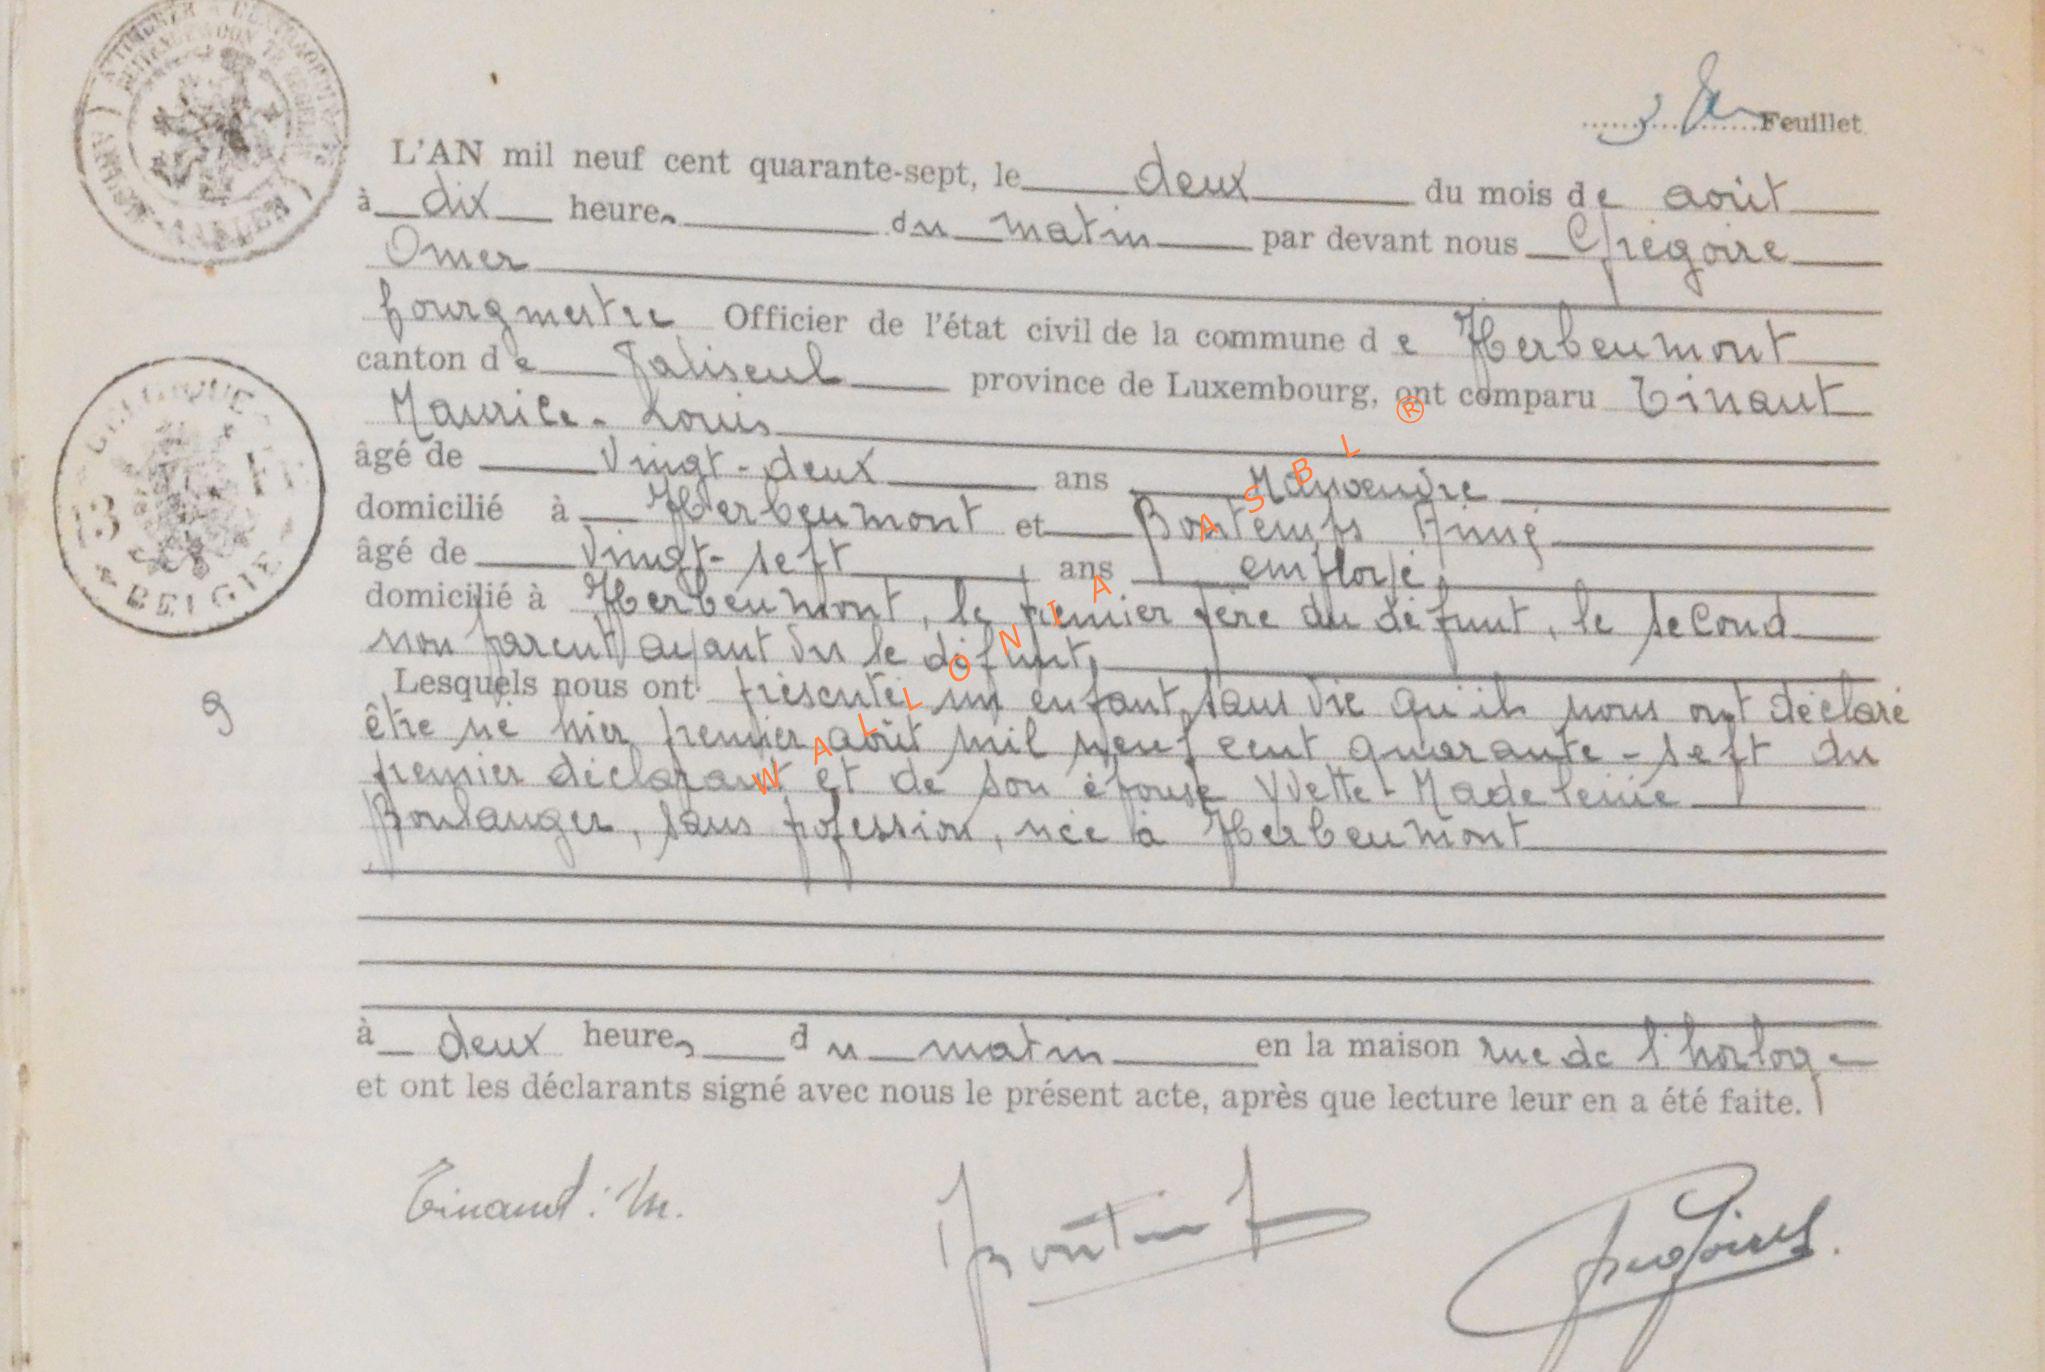 3
Feuillet
L'AN mil neuf cent quarante-sept, le deux du mois de août
à dix heures du matin par devant nous Grégoire
Omer
bourgmestre Officier de l'état civil de la commune de Herbeumont
canton de Paliseul province de Luxembourg, ont comparu Tinant
Maurice-Louis
âgé de vingt-deux ans Manoeuvre
domicilié à Herbeumont et Bontemps Aimé
âgé de vingt-sept ans employé,
domicilié à Herbeumont, le premier père du défunt, le second
non parent ayant vu le défunt,
Lesquels nous ont présenté un enfant sans vie qu'ils nous ont déclaré
être né hier premier août mil neuf cent quarante-sept du
premier déclarant et de son épouse Yvette-Madeleine
Boulanger, sans pofession, née à Herbeumont
9
à deux heures du matin en la maison rue de l'horloge
et ont les déclarants signé avec nous le présent acte, après que lecture leur en a été faite.
Tinant. M.
Grégoire
BELGIQUE
BELGIE
WALLONIA ASBL ®